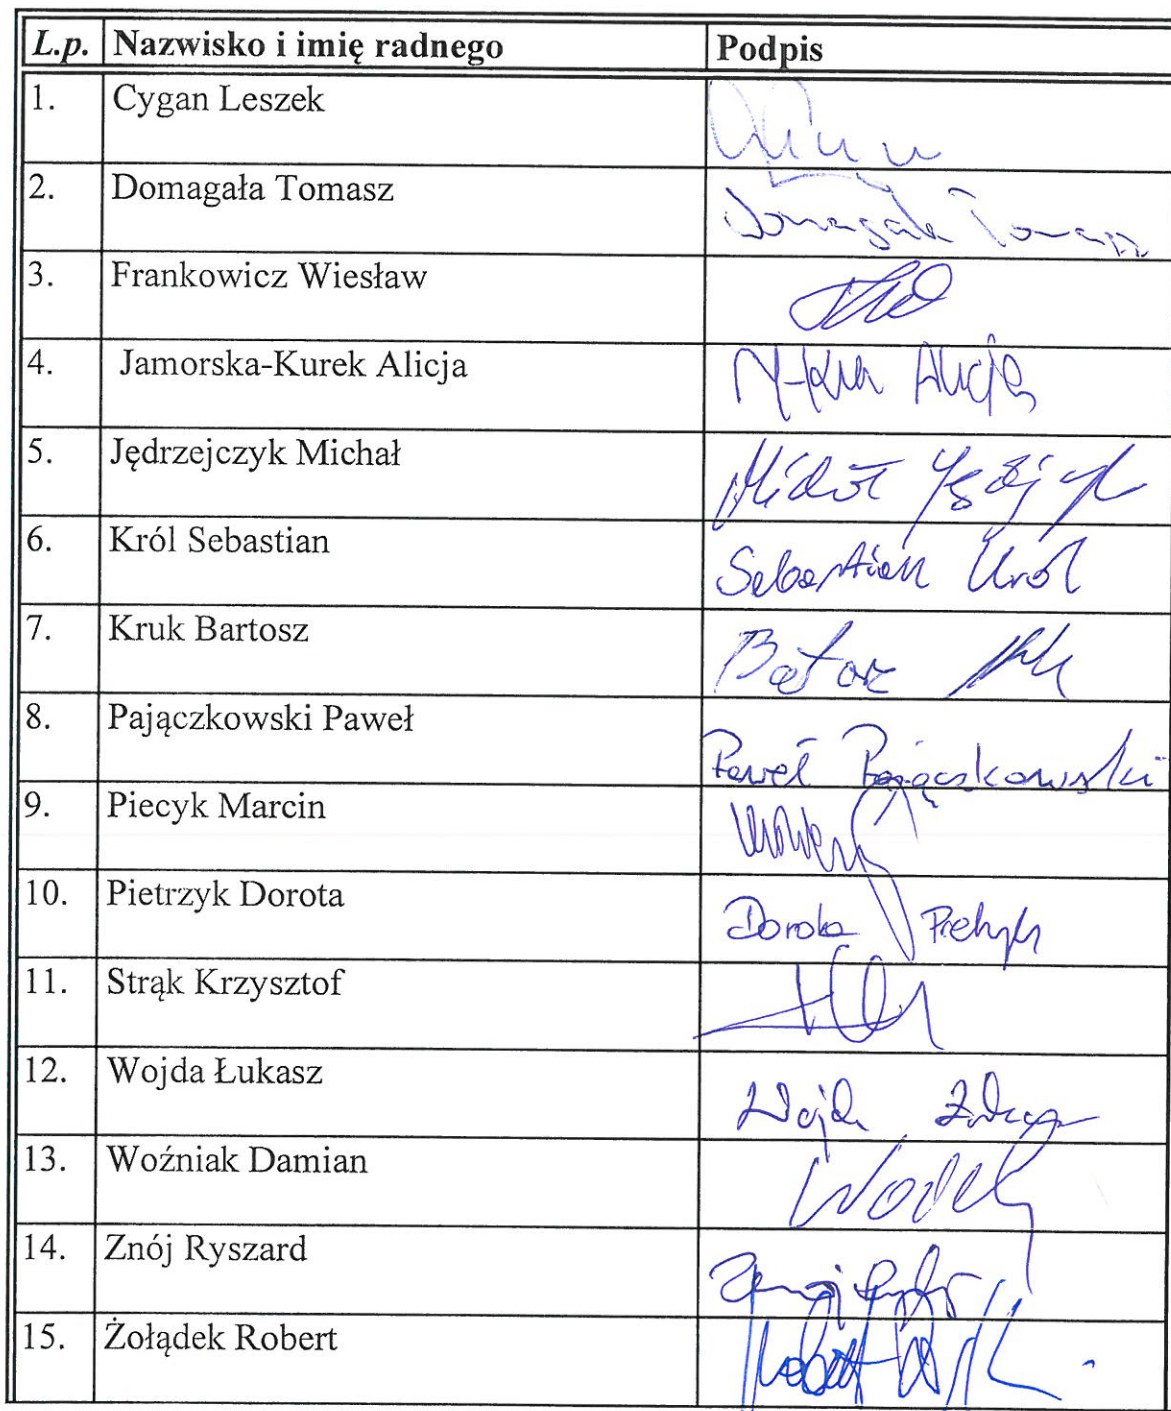 L.p. Nazwisko i imię radnego Podpis
1. Cygan Leszek
2. Domagała Tomasz Domagała Tomasz
3. Frankowicz Wiesław
4. Jamorska-Kurek Alicja Alicja
5. Jędrzejczyk Michał Michał
6. Król Sebastian Sebastian Król
7. Kruk Bartosz
8. Pajączkowski Paweł Paweł Pajączkowski
9. Piecyk Marcin
10. Pietrzyk Dorota Dorota Pietrzyk
11. Strąk Krzysztof
12. Wojda Łukasz Wojda Łukasz
13. Woźniak Damian
14. Znój Ryszard Znój
15. Żołądek Robert Robert